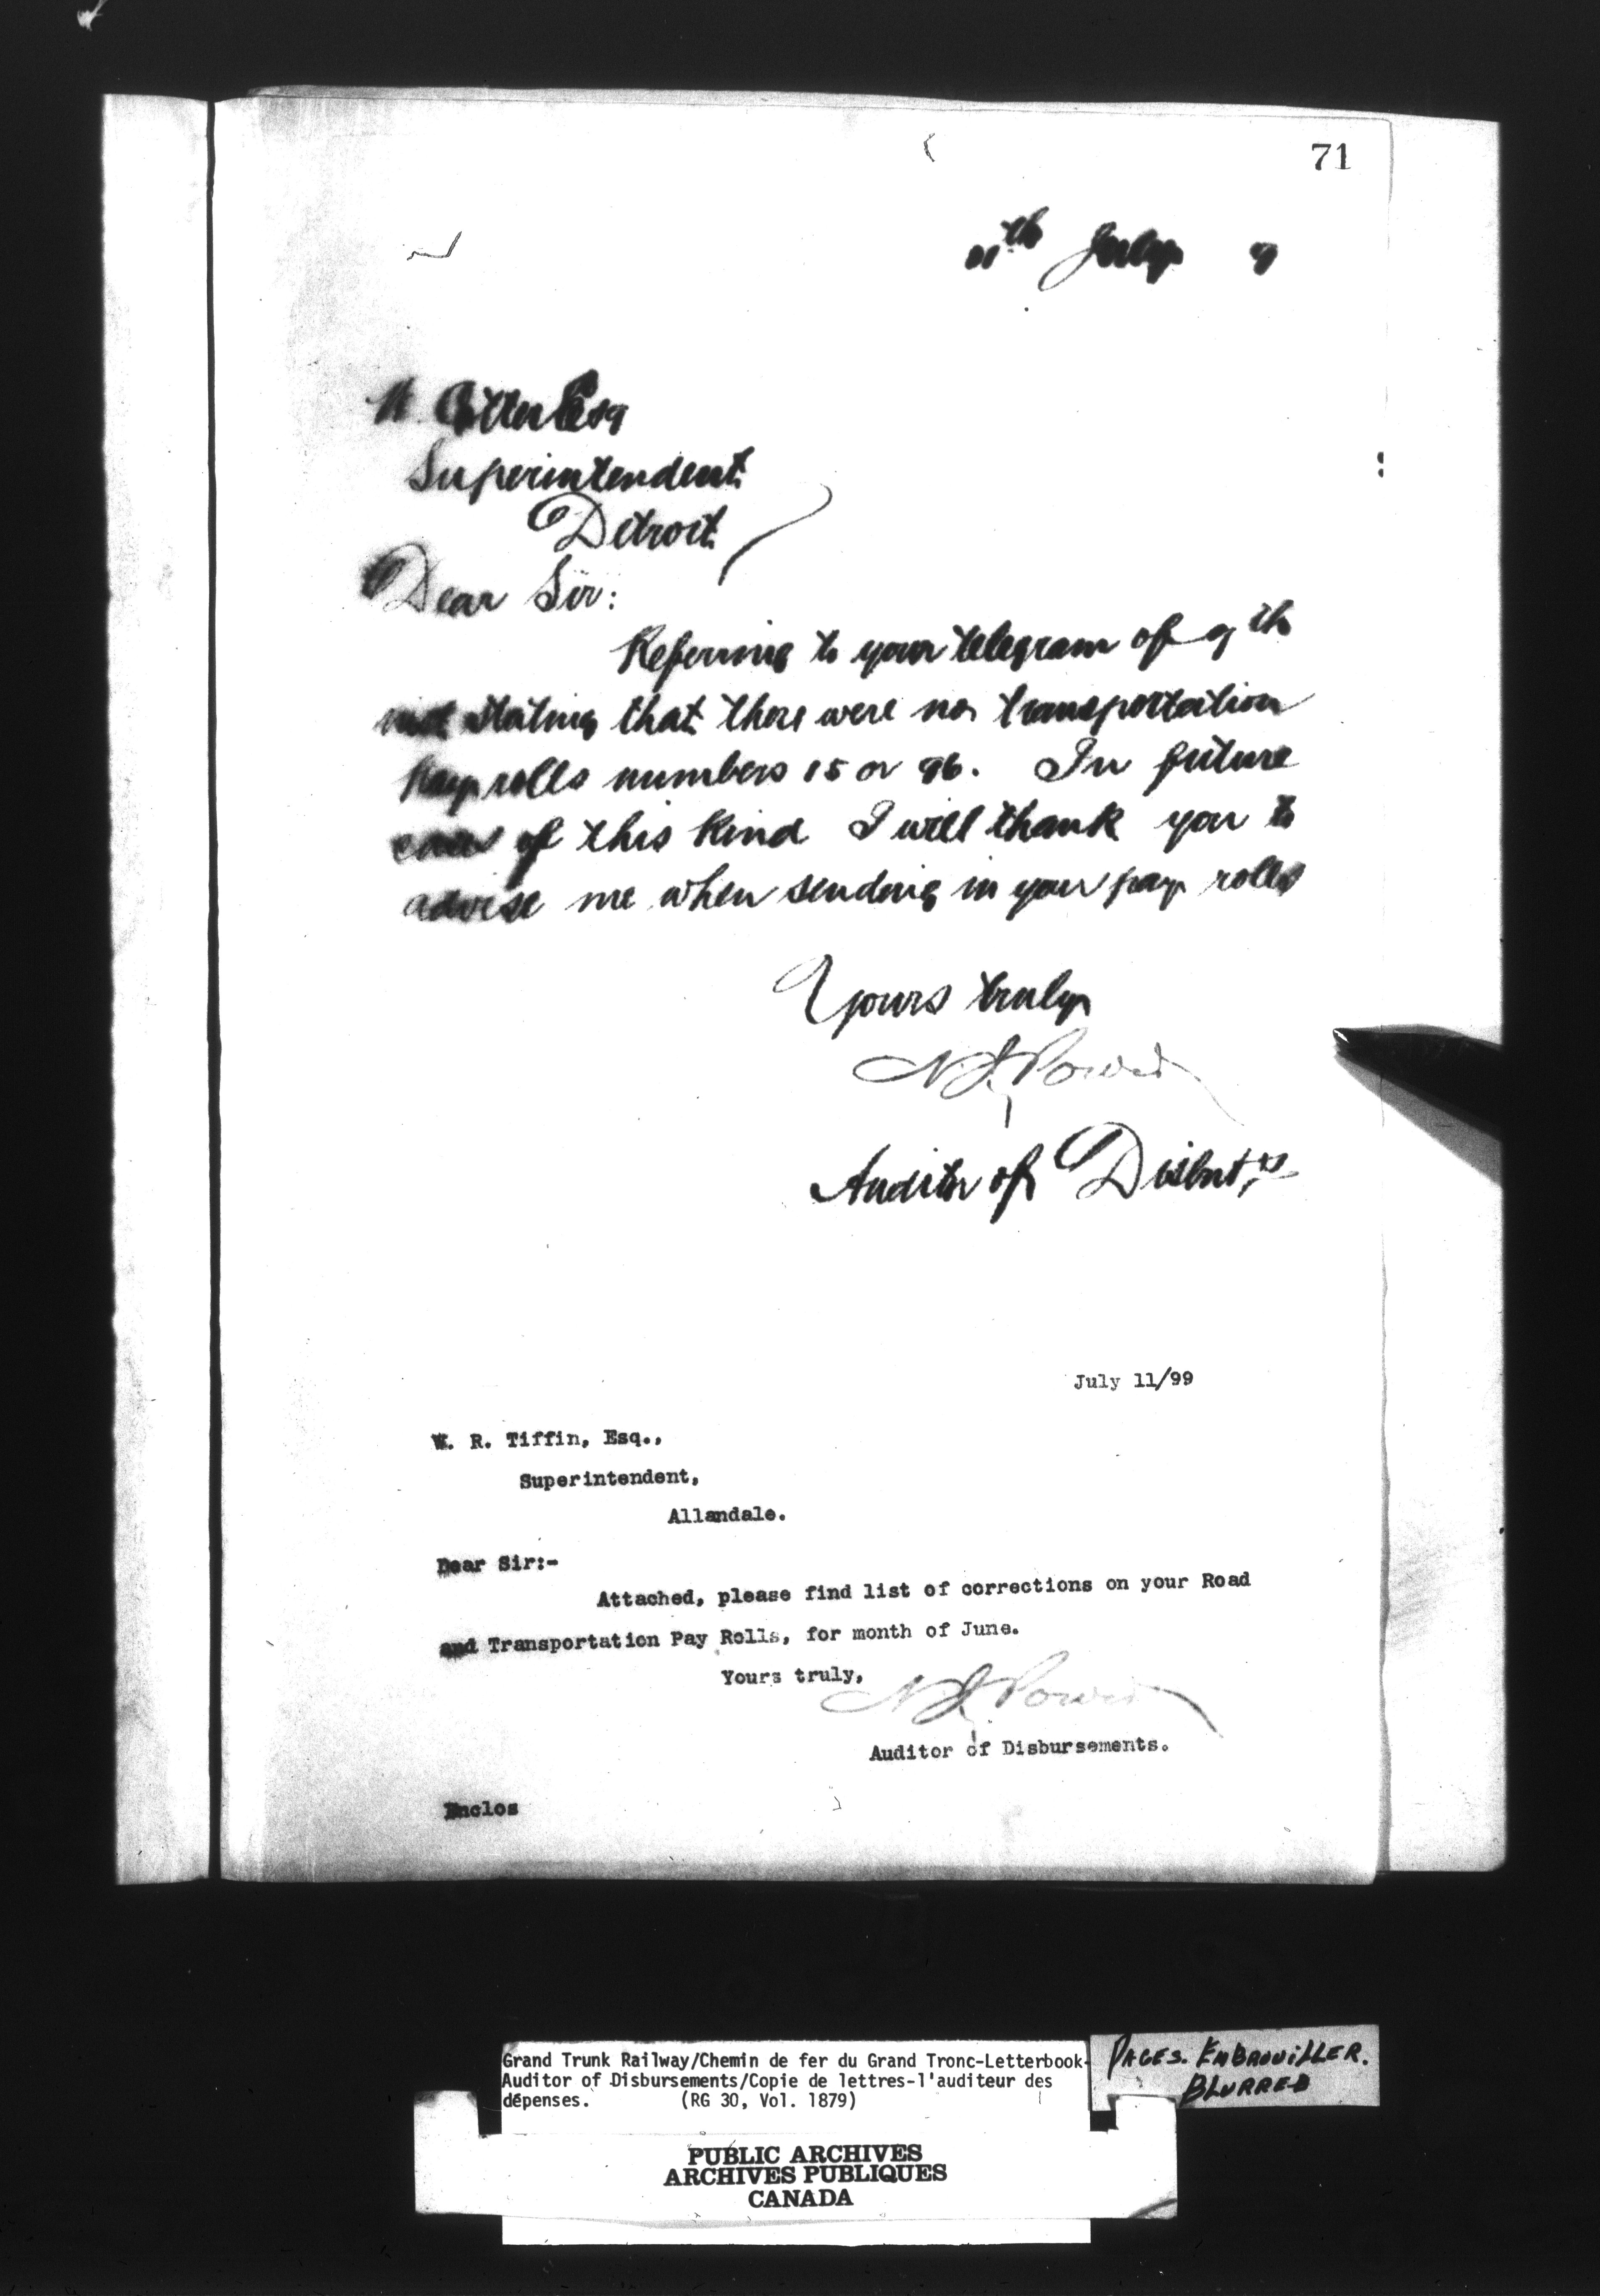 71
11th July 9
W. Cotter Esq
Superintendent
Detroit
Dear Sir:
Referring to your telegram of 9th
inst stating that there were no transportation
Pay rolls numbers 15 or 96. In future
cases of this kind I will thank you to
advise me when sending in your pay rolls
Yours truly
Auditor of Disbnts
July 11/99
W. R. Tiffin, Esq.,
Superintendent,
Allandale.
Dear Sir:-
Attached, please find list of corrections on your Road
and Transportation Pay Rolls, for month of June.
Yours truly,
Auditor of Disbursements.
Enclos
Grand Trunk Railway/Chemin de fer du Grand Tronc-Letterbook-
Auditor of Disbursements/Copie de lettres-l'auditeur des
dépenses. (RG 30, Vol. 1879)
PAGES. EMBROUILLER.
BLURRED
PUBLIC ARCHIVES
ARCHIVES PUBLIQUES
CANADA